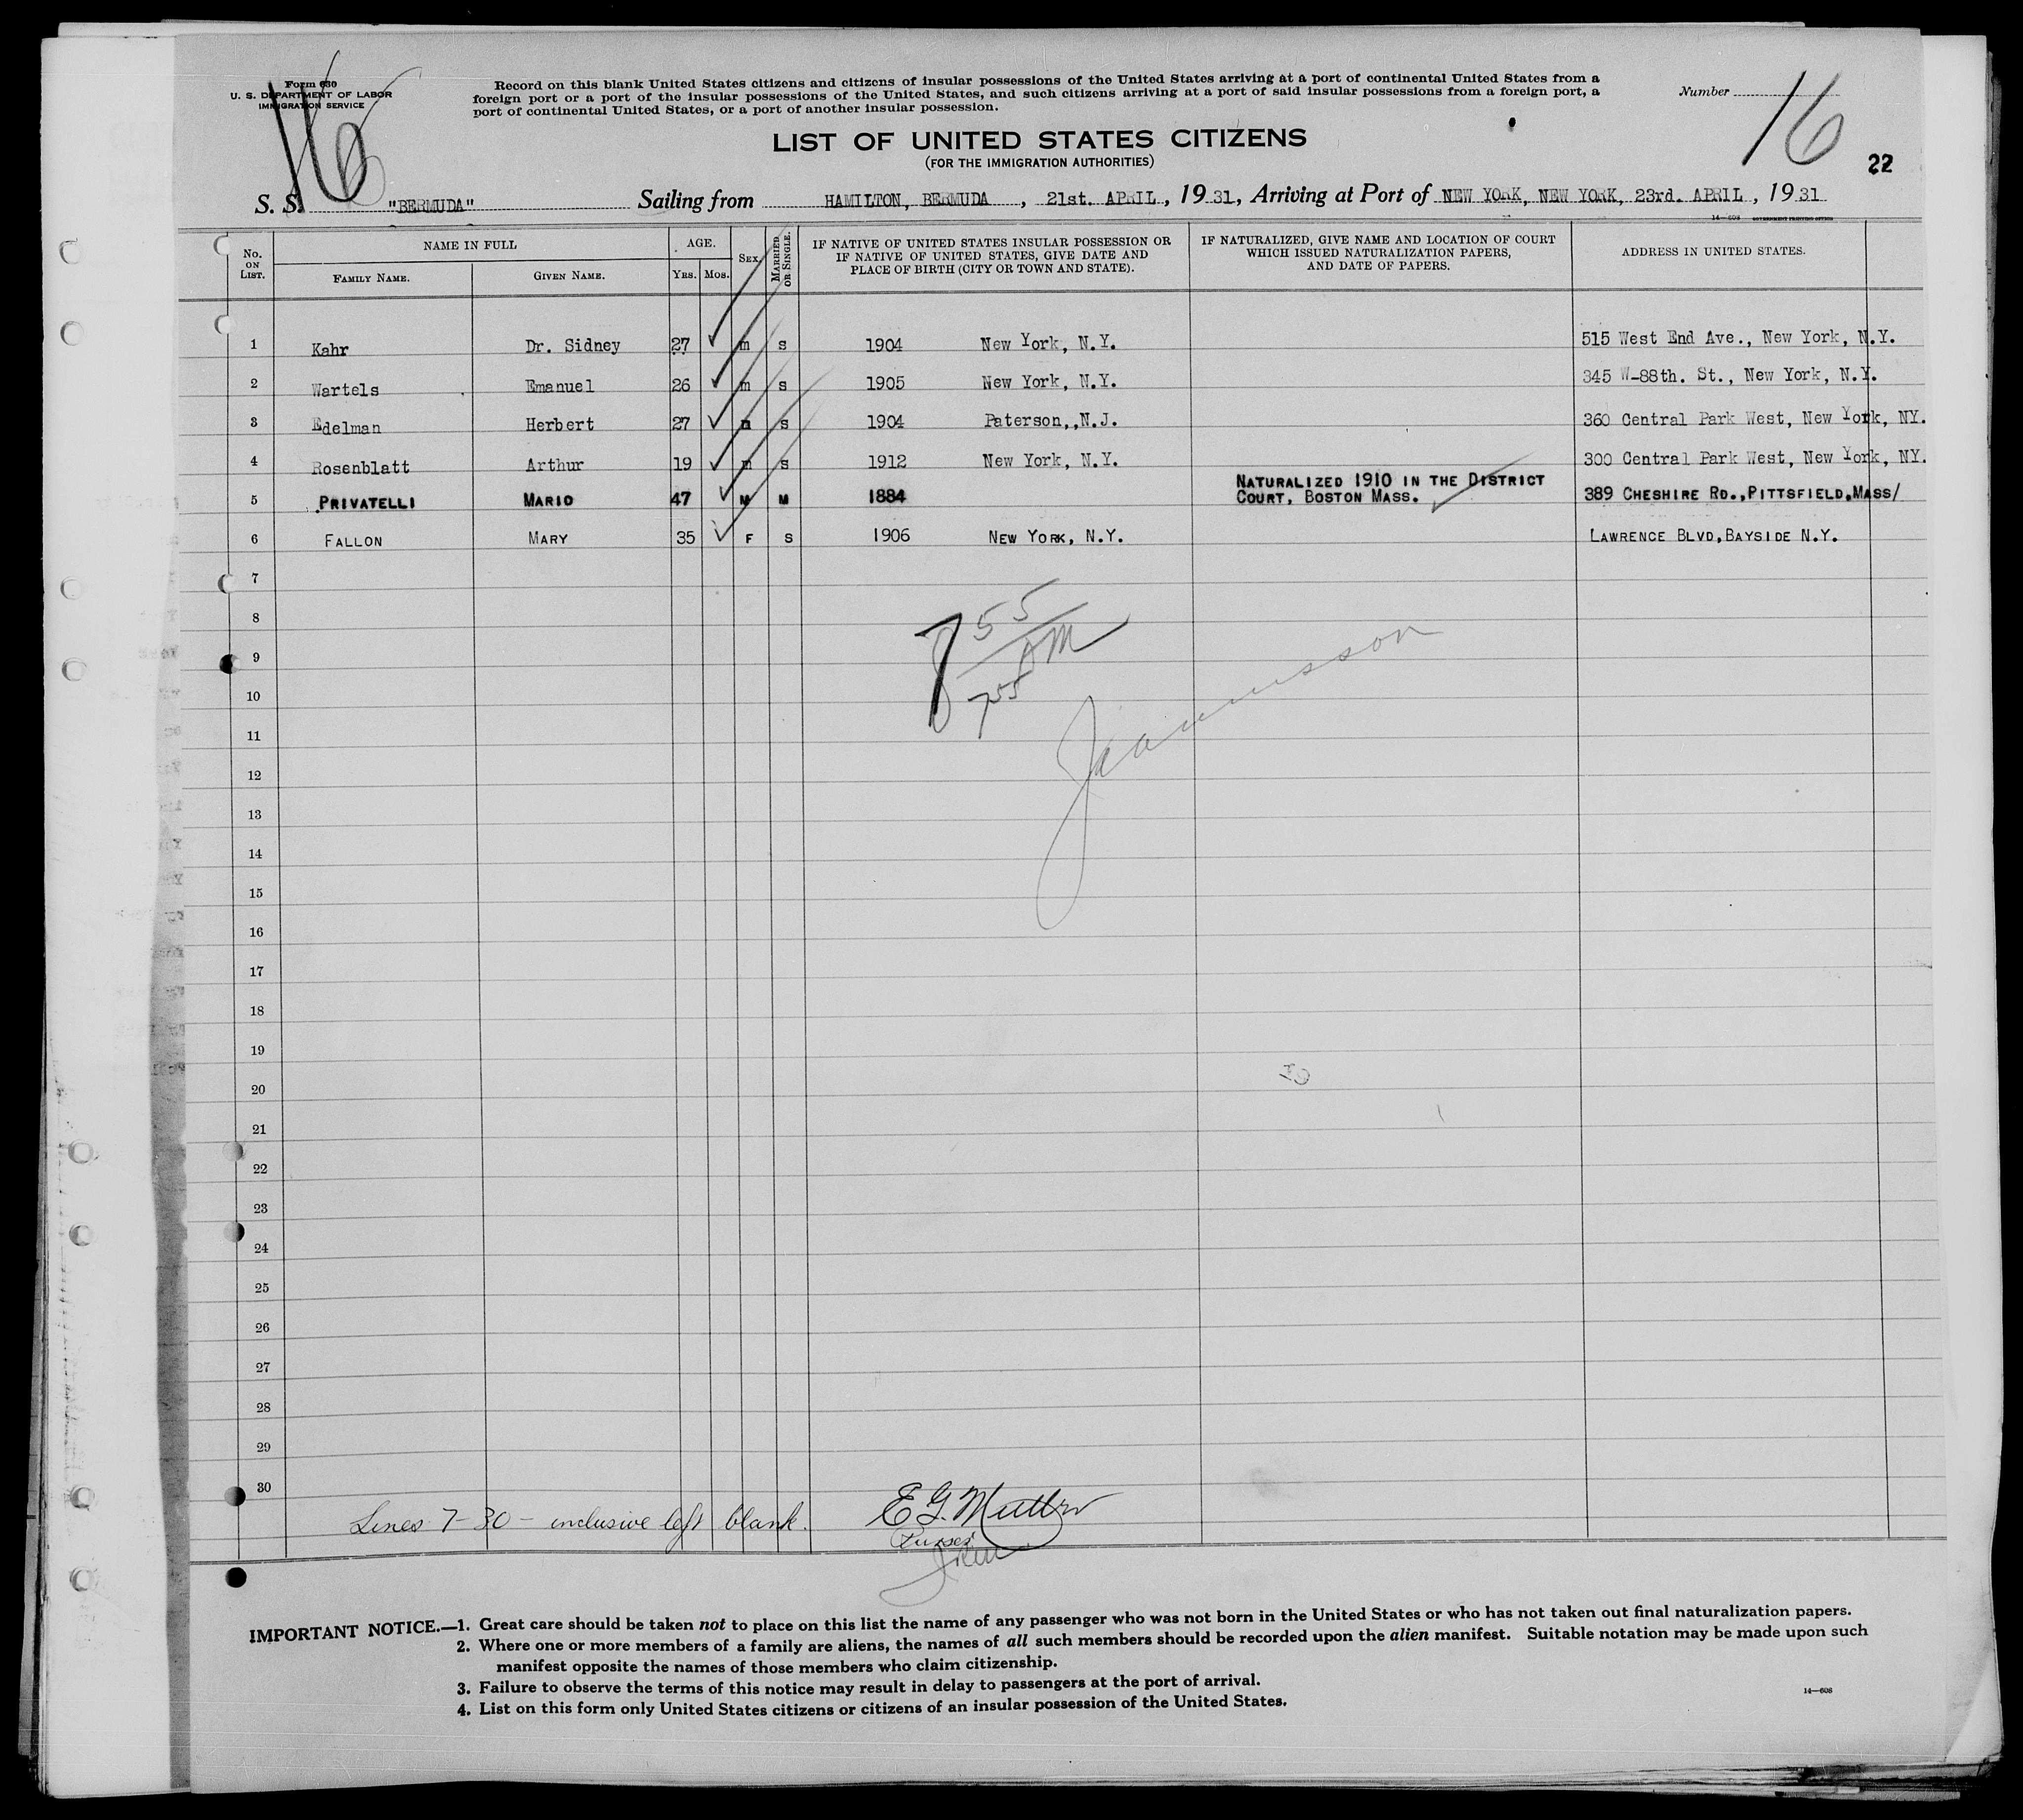 Form 630
U. S. DEPARTMENT OF LABOR
IMMIGRATION SERVICE
16
Record on this blank United States citizens and citizens of insular possessions of the United States arriving at a port of continental United States from a
foreign port or a port of the insular possessions of the United States, and such citizens arriving at a port of said insular possessions from a foreign port, a
port of continental United States, or a port of another insular possession.
Number
16
22
LIST OF UNITED STATES CITIZENS
(FOR THE IMMIGRATION AUTHORITIES)
S. S. "BERMUDA" Sailing from HAMILTON, BERMUDA, 21st. APRIL, 1931, Arriving at Port of NEW YORK, NEW YORK, 23rd. APRIL, 1931
14—608 GOVERNMENT PRINTING OFFICE
No. ON LIST. NAME IN FULL FAMILY NAME. GIVEN NAME. AGE. YRS. MOS. SEX. MARRIED OR SINGLE. IF NATIVE OF UNITED STATES INSULAR POSSESSION OR IF NATIVE OF UNITED STATES, GIVE DATE AND PLACE OF BIRTH (CITY OR TOWN AND STATE). IF NATURALIZED, GIVE NAME AND LOCATION OF COURT WHICH ISSUED NATURALIZATION PAPERS, AND DATE OF PAPERS. ADDRESS IN UNITED STATES.
1 Kahr Dr. Sidney 27 m s 1904 New York, N.Y. 515 West End Ave., New York, N.Y.
2 Wartels Emanuel 26 m s 1905 New York, N.Y. 345 W-88th. St., New York, N.Y.
3 Edelman Herbert 27 m s 1904 Paterson,,N.J. 360 Central Park West, New York, NY.
4 Rosenblatt Arthur 19 m s 1912 New York, N.Y. 300 Central Park West, New York, NY.
5 PRIVATELLI MARIO 47 M M 1884 NATURALIZED 1910 IN THE DISTRICT COURT, BOSTON MASS. 389 CHESHIRE RD.,PITTSFIELD,MASS/
6 FALLON MARY 35 F S 1906 NEW YORK, N.Y. LAWRENCE BLVD,BAYSIDE N.Y.
7
8
55
9
AM
7 55
10
11
12
13
14
15
16
17
18
19
20
21
22
23
24
25
26
27
28
29
30
Lines 7-30 - inclusive left blank.
Purser
IMPORTANT NOTICE.—1. Great care should be taken not to place on this list the name of any passenger who was not born in the United States or who has not taken out final naturalization papers.
2. Where one or more members of a family are aliens, the names of all such members should be recorded upon the alien manifest. Suitable notation may be made upon such
manifest opposite the names of those members who claim citizenship.
3. Failure to observe the terms of this notice may result in delay to passengers at the port of arrival.
4. List on this form only United States citizens or citizens of an insular possession of the United States.
14—608